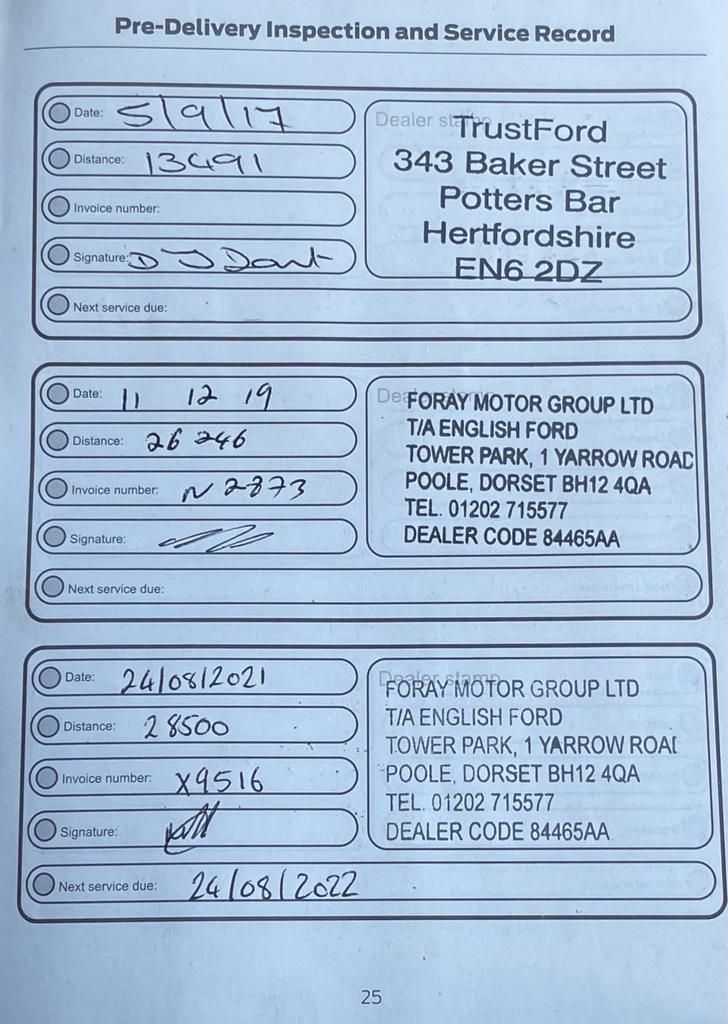 Pre-Delivery Inspection and Service Record
Date: 5/9/17
Distance: 13491
Invoice number:
Signature: D J Dant
Next service due:
Dealer stamp
TrustFord
343 Baker Street
Potters Bar
Hertfordshire
EN6 2DZ
Date: 11 12 19
Distance: 26 246
Invoice number: N 2873
Signature:
Next service due:
Dealer stamp
FORAY MOTOR GROUP LTD
T/A ENGLISH FORD
TOWER PARK, 1 YARROW ROAD
POOLE, DORSET BH12 4QA
TEL. 01202 715577
DEALER CODE 84465AA
Date: 24/08/2021
Distance: 28500
Invoice number: X9516
Signature:
Next service due: 24/08/2022
Dealer stamp
FORAY MOTOR GROUP LTD
T/A ENGLISH FORD
TOWER PARK, 1 YARROW ROAD
POOLE, DORSET BH12 4QA
TEL. 01202 715577
DEALER CODE 84465AA
25